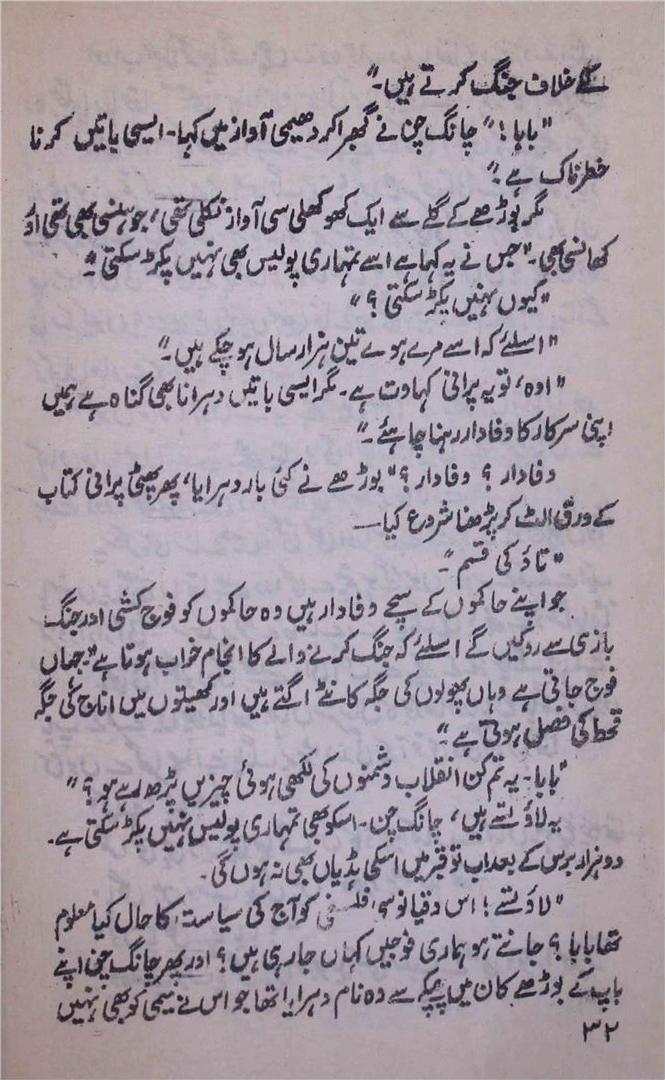 کے خلاف جنگ کرتے ہیں۔"
"بابا!" چانگ چن نے گھبرا کر دھیمی آواز میں کہا۔ ایسی باتیں کرنا
خطرناک ہے۔"
مگر بوڑھے کے گلے سے ایک کھوکھلی سی آواز نکلی تھی، جو ہنسی بھی تھی اور
کھانسی بھی۔ "جس نے یہ کہا ہے اسے تمہاری پولیس بھی نہیں پکڑ سکتی۔"
"کیوں نہیں پکڑ سکتی؟"
"اسلئے کہ اسے مرے ہوئے تین ہزار سال ہو چکے ہیں۔"
"اوہ، تو یہ پرانی کہاوت ہے۔ مگر ایسی باتیں دہرانا بھی گناہ ہے ہمیں
اپنی سرکار کا وفادار رہنا چاہئے۔"
وفادار؟ وفادار؟" بوڑھے نے کئی بار دہرایا، پھر پھٹی پرانی کتاب
کے ورق الٹ کر پڑھنا شروع کیا—
"تاؤ کی قسم"۔
جو اپنے حاکموں کے سچے وفادار ہیں وہ حاکموں کو فوج کشی اور جنگ
بازی سے روکیں گے اسلئے کہ جنگ کرنے والے کا انجام خواب ہوتا ہے"۔ جہاں
فوج جاتی ہے وہاں پھولوں کی جگہ کانٹے اگتے ہیں اور کھیتوں میں اناج کی جگہ
قحط کی فصل ہوتی ہے۔"
"بابا۔ یہ تم کن انقلاب دشمنوں کی لکھی ہوئی چیزیں پڑھ رہے ہو؟"
یہ لاؤ تسے ہیں، چانگ چن۔ اسکو بھی تمہاری پولیس نہیں پکڑ سکتی ہے۔
دو ہزار برس کے بعد اب تو قبر میں اسکی ہڈیاں بھی نہ ہوں گی۔
"لاؤ تسے! اس دقیانوسی فلسفی کو آج کی سیاست کا حال کیا معلوم
تھا بابا؟ جانتے ہو ہماری فوجیں کہاں جا رہی ہیں؟ اور پھر چانگ چن اپنے
باپ کے بوڑھے کان میں چپکے سے وہ نام دہرایا تھا جو اس نے سیمی کو بھی نہیں
۳۲